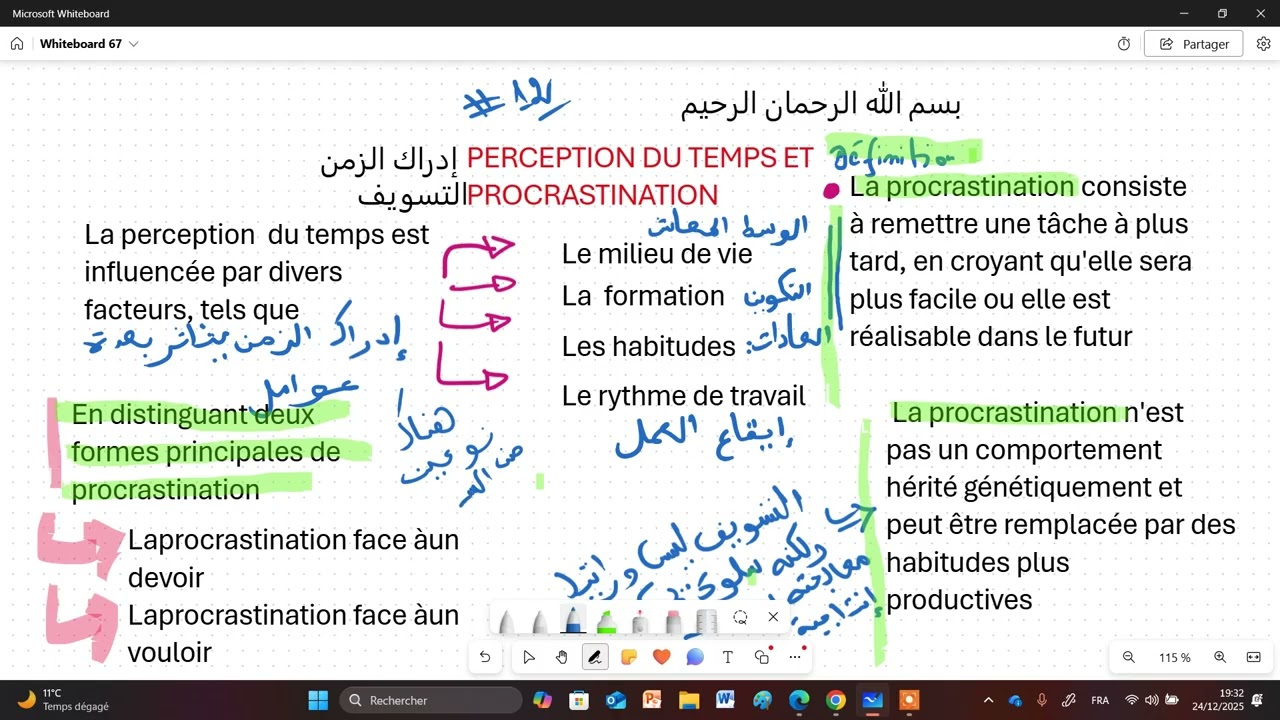 Microsoft Whiteboard
Whiteboard 67
Partager
# 12
بسم الله الرحمان الرحيم
إدراك الزمن PERCEPTION DU TEMPS ET
التسويف PROCRASTINATION
La perception du temps est
influencée par divers
facteurs, tels que
إدراك الزمن يتأثر بعدة
عوامل
الوسط المعاش
Le milieu de vie
La formation التكوين
Les habitudes : العادات
Le rythme de travail
إيقاع العمل
définition
La procrastination consiste
à remettre une tâche à plus
tard, en croyant qu'elle sera
plus facile ou elle est
réalisable dans le futur
En distinguant deux
formes principales de
procrastination
هناك
نوعين
من
Laprocrastination face àun
devoir
Laprocrastination face àun
vouloir
La procrastination n'est
pas un comportement
hérité génétiquement et
peut être remplacée par des
habitudes plus
productives
التسويف ليس وراثيا
ولكنه سلوك
معالجته
إنتاجية
115 %
11°C
Temps dégagé
Rechercher
FRA
19:32
24/12/2025